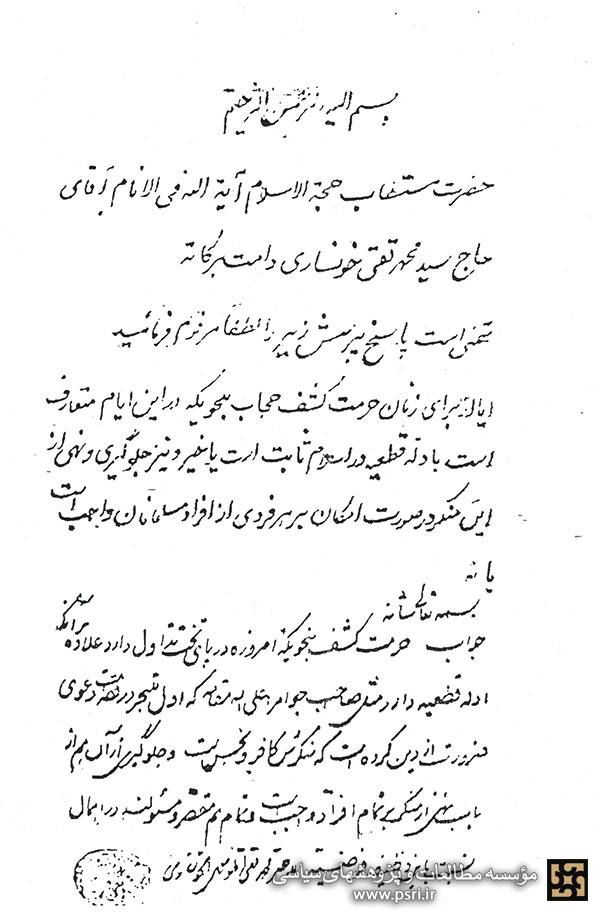 بسم الله الرحمن الرحیم
حضرت مستطاب حجة الاسلام آیة الله فی الانام آقای
حاج سید محمد تقی خونساری دامت برکاته
متمنی است پاسخ پرسش زیر را لطفا مرقوم فرمائید
برای زنان حرمت کشف حجاب بنحویکه در این ایام متعارف
است بادله قطعیه در اسلام ثابت است یا خیر و نیز جلوگیری و نهی از
این منکر در صورت امکان بر هر فردی از افراد مسلمانان واجب است
یا نه
بسمه تعالی شانه
جواب حرمت کشف بنحویکه امروزه در پای تخت تداول دارد علاوه بر آنکه
ادله قطعیه دارد مثل صاحب جواهر اعلی الله مقامه که اول متبحر در فقه است دعوی
ضرورت از دین کرده است که منکرش کافر و نجس است و جلوگیری از آن هم از
باب نهی از منکر بر تمام افراد واجب است و تمام هم مقصر و مسئولند در اهمال
الاحقر محمد تقی الموسوی الخونساری
مؤسسه مطالعات و پژوهشهای سیاسی
www.psri.ir